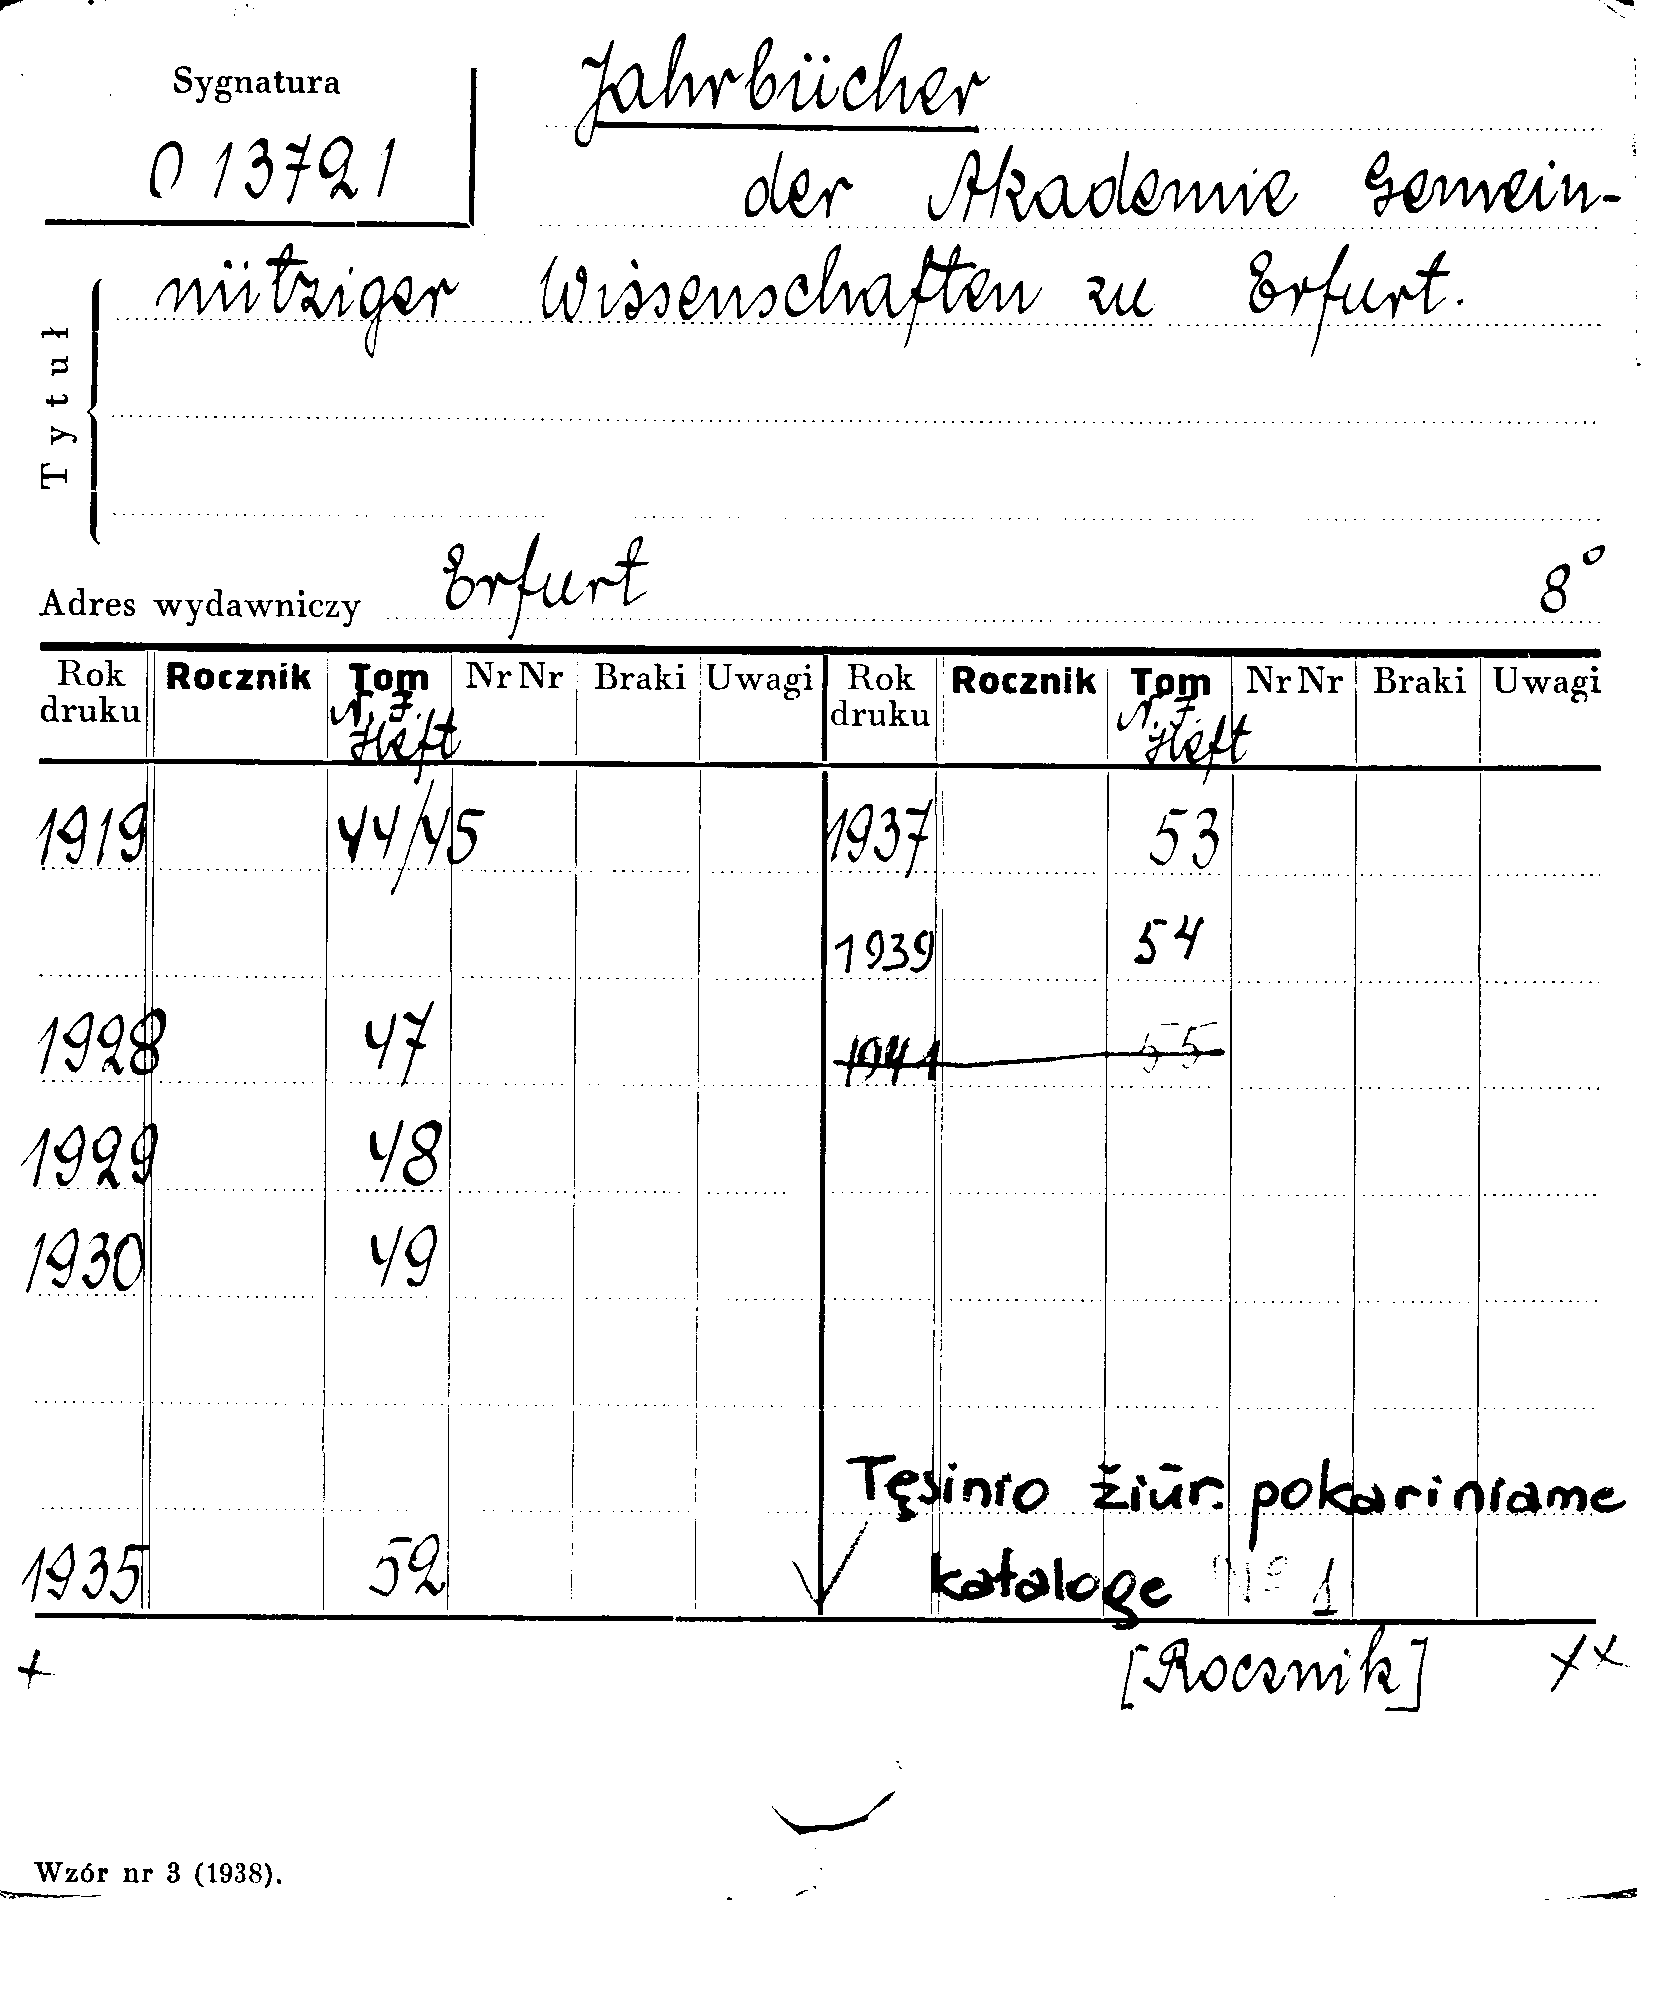 Sygnatura
013721
Jahrbücher
der Akademie Gemein-
nütziger Wissenschaften zu Erfurt.
Tytuł
Adres wydawniczy Erfurt 8°
Rok druku Rocznik Tom N. F. Heft Nr Nr Braki Uwagi Rok druku Rocznik Tom N. F. Heft Nr Nr Braki Uwagi
1919 44/45 1937 53
1939 54
1928 47 1941 55
1929 48
1930 49
Tęsinio žiūr. pokariniame
1935 52 kataloge № 1
+ [Rocznik] ××
Wzór nr 3 (1938).